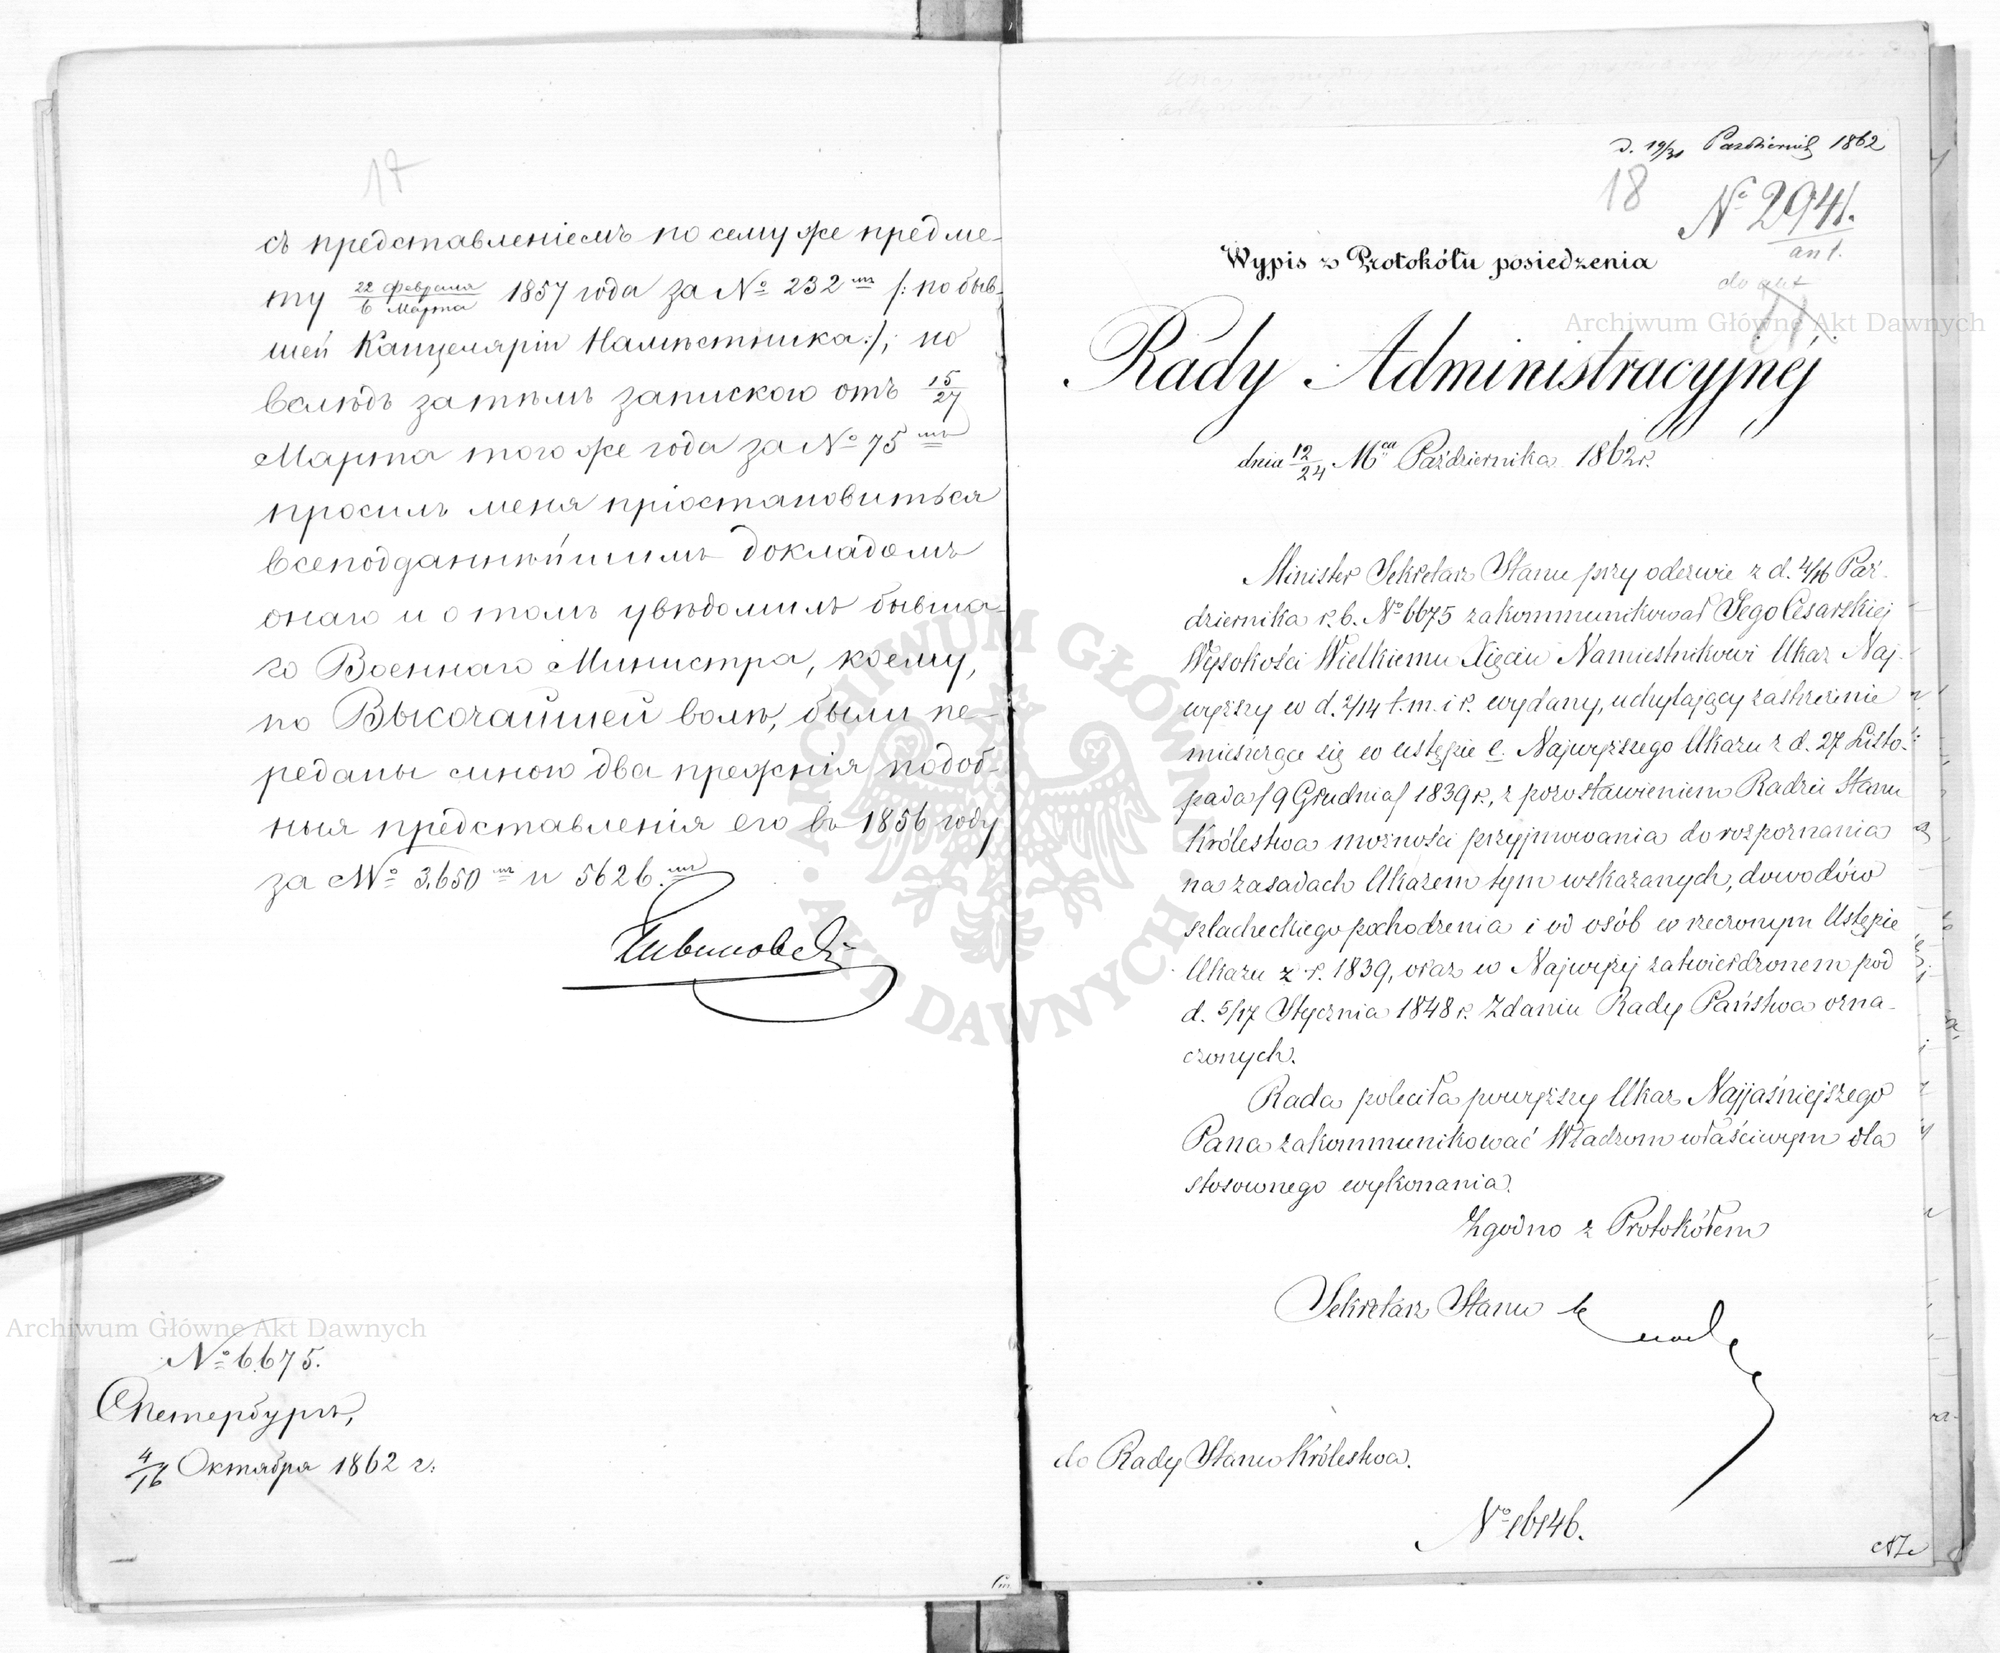 17
съ представленіемъ по сему же предме-
ту 22 Февраля / 6 Марта 1857 года за № 232мъ /: по быв-
шей Канцеляріи Намѣстника :/, но
вслѣдъ затѣмъ запискою отъ 15/27
Марта того же года за № 75мъ
просилъ меня пріостановиться
всеподданнѣйшимъ докладомъ
онаго и о томъ увѣдомилъ бывша-
го Военнаго Министра, коему,
по Высочайшей волѣ, были пе-
реданы мною два прежнія подоб-
ныя представленія его въ 1856 году
за №№ 3,650мъ и 5626.мъ
№ 6,675.
СПетербургъ,
4/16 Октября 1862 г.
d. 19/31 Październik 1862
18
№ 2941.
ant.
do akt
Wypis z Protokółu posiedzenia
Rady Administracyjnéj
dnia 12/24 Mca Października 1862 r.
Minister Sekretarz Stanu przy odezwie z d. 4/16 Paź-
dziernika r. b. № 6675 zakommunikował Jego Cesarskiej
Wysokości Wielkiemu Xięciu Namiestnikowi Ukaz Naj-
wyższy w d. 2/14 t. m. i r. wydany, uchylający zastrzeżenie
mieszczące się w ustępie e. Najwyższego Ukazu z d. 27 Listo-
pada /9 Grudnia/ 1839 r., z pozostawieniem Radzie Stanu
Królestwa możności przyjmowania do rozpoznania
na zasadach Ukazem tym wskazanych, dowodów
szlacheckiego pochodzenia i od osób w rzeczonym Ustępie
Ukazu z r. 1839, oraz w Najwyżej zatwierdzonem pod
d. 5/17 Stycznia 1848 r. Zdaniu Rady Państwa ozna-
czonych.
Rada poleciła powyższy Ukaz Najjaśniejszego
Pana zakommunikować Władzom właściwym dla
stosownego wykonania.
Zgodno z Protokółem
Sekretarz Stanu
do Rady Stanu Królestwa.
№ 16146.
Archiwum Główne Akt Dawnych
Archiwum Główne Akt Dawnych
ARCHIWUM GŁÓWNE AKT DAWNYCH